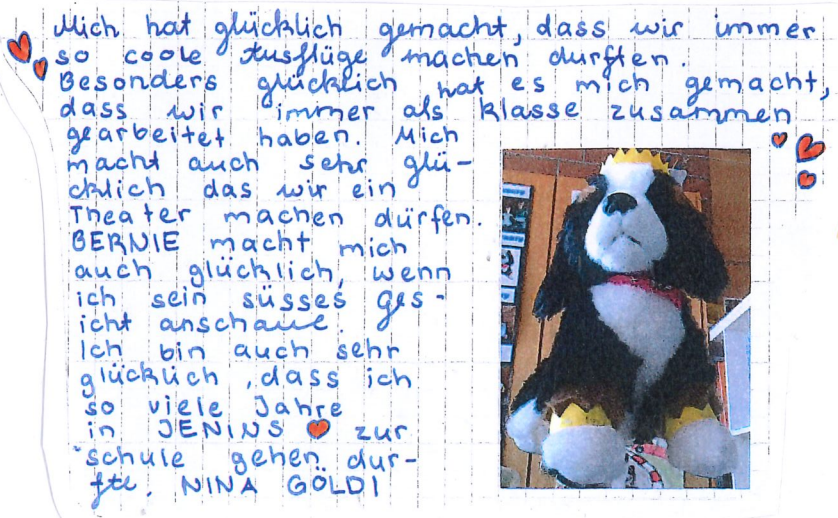 Mich hat glücklich gemacht, dass wir immer
so coole Ausflüge machen durften.
Besonders glücklich hat es mich gemacht,
dass wir immer als Klasse zusammen
gearbeitet haben. Mich
macht auch sehr glü-
cklich das wir ein
Theater machen dürfen.
BERNIE macht mich
auch glücklich, wenn
ich sein süsses Ges-
icht anschaue.
Ich bin auch sehr
glücklich, dass ich
so viele Jahre
in JENINS zur
schule gehen dur-
fte. NINA GÖLDI